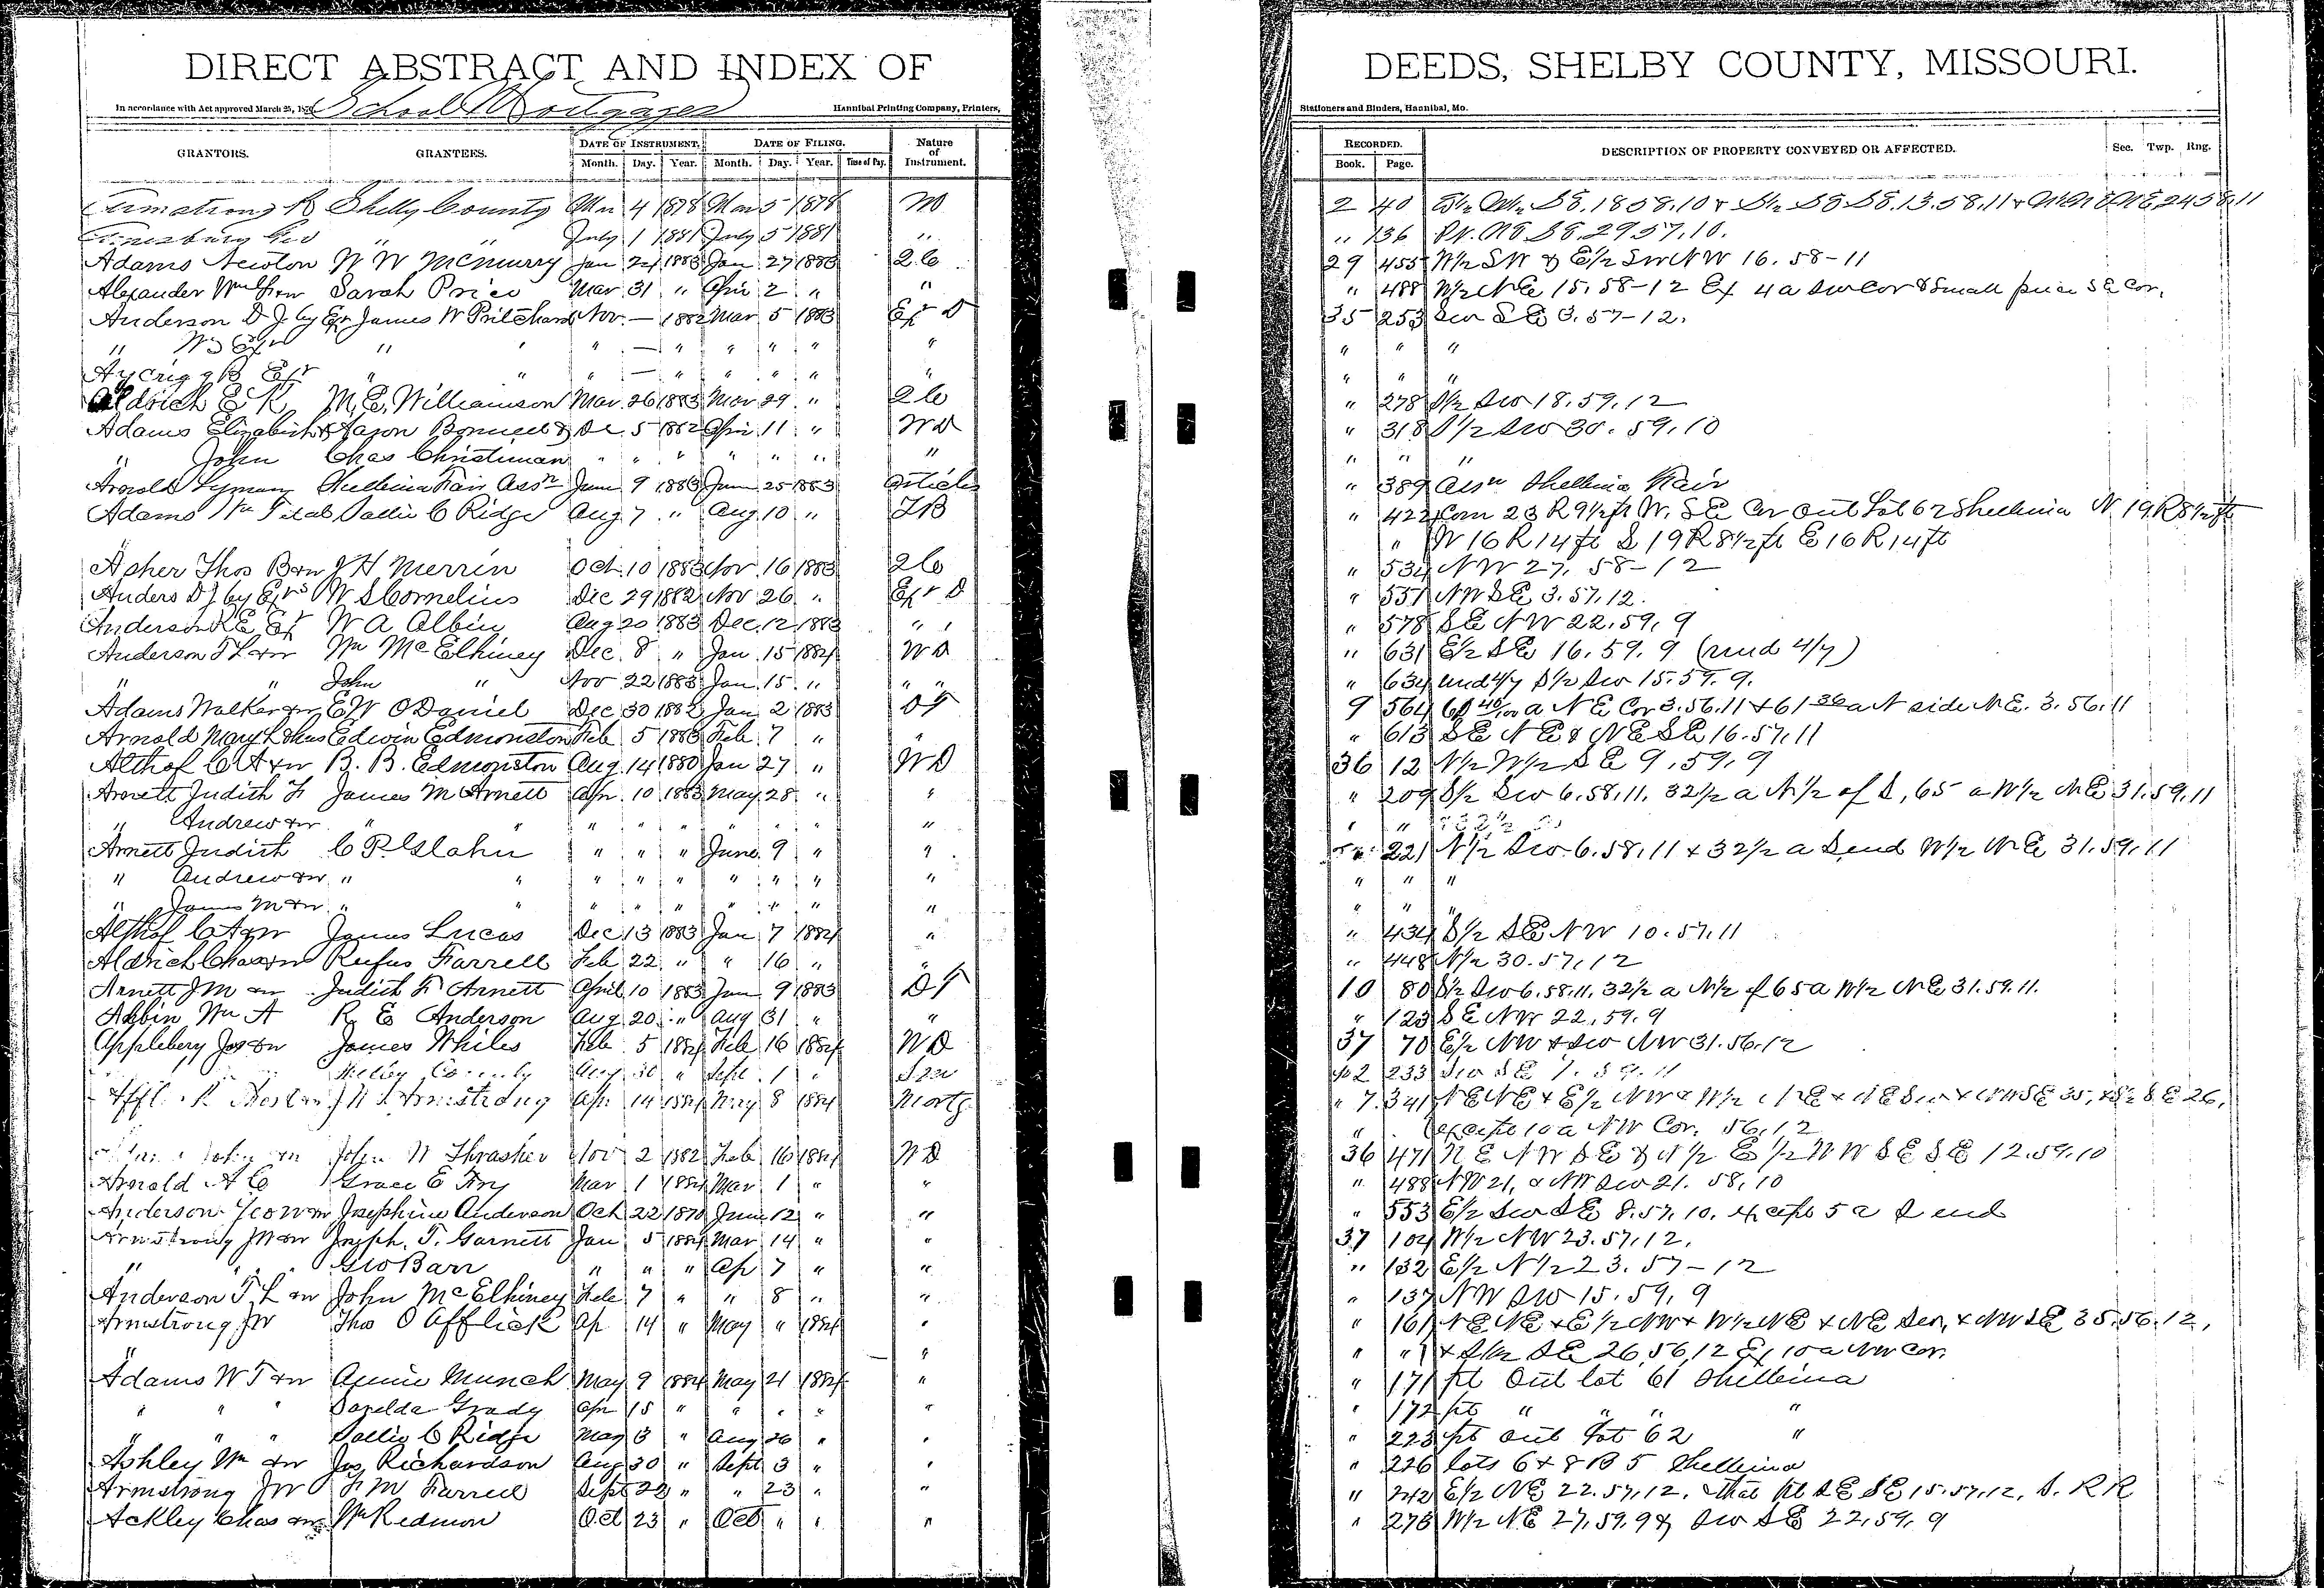 DIRECT ABSTRACT AND INDEX OF DEEDS, SHELBY COUNTY, MISSOURI.
In accordance with Act approved March 25, School Mortgages Hannibal Printing Company, Printers, Stationers and Binders, Hannibal, Mo.
GRANTORS. GRANTEES. DATE OF INSTRUMENT. DATE OF FILING. Nature of Instrument. RECORDED. DESCRIPTION OF PROPERTY CONVEYED OR AFFECTED. Sec. Twp. Rng.
Month. Day. Year. Month. Day. Year. Book. Page.
Armstrong R Shelby County Mar 4 1878 Mar 5 1878 2 40 18.58.10 & S½ SE SE.13.58.11 & 24.58.11
Geo " " July 1 1881 July 5 1881 " " 136 NE SE.29.57.10.
Adams Newton W W McMurry Jan 24 1883 Jan 27 1883 2C 29 455 W½ SW & E½ SW NW 16.58-11
Alexander Wm Sarah Price Mar 31 " Apr 2 " " " 488 W½ NE 15.58-12 Ex 4a SW cor & small piece SE cor.
Anderson D J by Exr James W Pritchard Nov. — 1882 Mar 5 1883 Exr D 35 253 SW SE 3.57-12.
" Exr " " " — " " " " " " " "
Aycrigg B Exr " " " — " " " " " " " "
Aldrich E K M. E. Williamson Mar 26 1883 Mar 29 " 2C " 278 S½ SW 18.59.12
Adams Elizabeth & Jason Bonnell & Dec 5 1882 Apr 11 " WD " 318 S½ SW 30.59.10
" John Chas Christman " " " " " " " " " "
Arnold Lyman Shelbina Fair Assn June 9 1883 June 25 1883 Articles " 389 Assn Shelbina Fair
Adams Wm T et al Sallie C Ridge Aug 7 " Aug 10 " TB " 422 Com 23 R 9½ ft W. SE Cor Out Lot 62 Shelbina N 19 R 8½ ft
" W 16 R 14 ft S 19 R 8½ ft E 16 R 14 ft
Asher Thos B & w J H Merrin Oct. 10 1883 Nov. 16 1883 2C " 534 NW 27.58-12
Anders D J by Exrs W S Cornelius Dec 29 1882 Nov 26 " Exr D " 551 NW SE 3.57.12.
Anderson R E Ex W A Albin Aug 20 1883 Dec. 12 1883 " " " 578 SE NW 22.59.9
Anderson T L & w Wm McElhiney Dec. 8 " Jan 15 1884 WD " 631 E½ SE 16.59.9 (und 4/7)
" " John " Nov 22 1883 Jan 15 " " " " 634 und 4/7 S½ SW 15.59.9.
Adams Walker & w E W O Daniel Dec 30 1882 Jan 2 1883 DT 9 564 a NE Cor 3.56.11 & 61 a N side NE. 3.56.11
Arnold Mary L & hus Edwin Edmonston Feb 5 1883 Feb 7 " " " 613 SE NE & NE SE 16.57.11
Althof C A & w B. B. Edmonston Aug. 14 1880 Jan 27 " WD 36 12 N½ W½ SE 9.59.9
Arnett Judith F James M Arnett Apr. 10 1883 May 28 " " " 209 S½ SW 6.58.11. 32½ a N½ of S, 65 a W½ NE 31.59.11
" Andrew & w " " " " " " " " " " "
Arnett Judith C P Glahn " " " June 9 " " 221 N½ SW 6.58.11 & 32½ a S end W½ NE 31.59.11
" Andrew & w " " " " " " " " " " " "
" James M & w " " " " " " " " " " " "
Althof C A & w James Lucas Dec 13 1883 Jan 7 1884 " " 434 S½ SE NW 10.57.11
Aldrich Chas & w Rufus Farrell Feb 22 " " 16 " " " 448 N½ 30.57.12
Arnett J M & w Judith F Arnett April 10 1883 June 9 1883 DT 10 80 S½ SW 6.58.11. 32½ a N½ of 65 a W½ NE 31.59.11.
Albin Wm A R E Anderson Aug 20 " Aug 31 " " " 123 SE NW 22.59.9
Appleberry Jas & w James Whiles Feb 5 1884 Feb 16 1884 WD 37 70 E½ NW & SW NW 31.56.12
Shelby County Aug 30 " Sept 1 " 2 233 SW SE 7.59.11
J W Armstrong Apr 14 1884 May 8 1884 Mortg " 7 341 NE NE & E½ NW & W½ NE & NE SW & NW SE 35, & S½ SE 26,
" except 10 a NW Cor. 56.12
John & w John W Thrasher Nov 2 1882 Feb 16 1884 WD 36 471 NE NW SE & N½ E½ NW SE SE 12.59.10
Arnold A C Grace E Fry Mar 1 1884 Mar 1 " " " 488 NW 21, & NW SW 21.58.10
Anderson Geo W & w Josephine Anderson Oct 22 1870 June 12 " " " 553 E½ SW SE 8.57.10. except 5 a S end
Armstrong J W & w Joseph. T. Garnett Jan 5 1884 Mar 14 " " 37 104 W½ NW 23.57.12.
" " " Geo Barr " " " Ap 7 " " " 132 E½ N½ 23.57-12
Anderson T L & w John McElhiney Feb 7 " " 8 " " " 137 NW SW 15.59.9
Armstrong J W Thos O Afflick Ap 14 " May " 1884 " " 161 NE NE & E½ NW & W½ NE & NE SW, & NW SE 35.56.12,
" " " " & S½ SE 26.56.12 Ex 10 a NW Cor.
Adams W T & w Annie Munch May 9 1884 May 21 1884 " " 171 pt Out lot 61 Shelbina
" " " Sarelda Grady Apr 15 " " " " " " 172 pt " " " "
" " " Sallie C Ridge May 3 " Aug 26 " " " 223 pt Out Lot 62 "
Ashley Wm & w Jos Richardson Aug 30 " Sept 3 " " " 226 lots 6 & 8 B 5 Shelbina
Armstrong J W F M Farrell Sept 22 " " 23 " " " 242 E½ NE 22.57.12. that pt SE SE 15.57.12. S. RR
Ackley Chas & w Wm Redmon Oct 23 " Oct " " " " 273 W½ NE 27.59.9 & SW SE 22.59.9